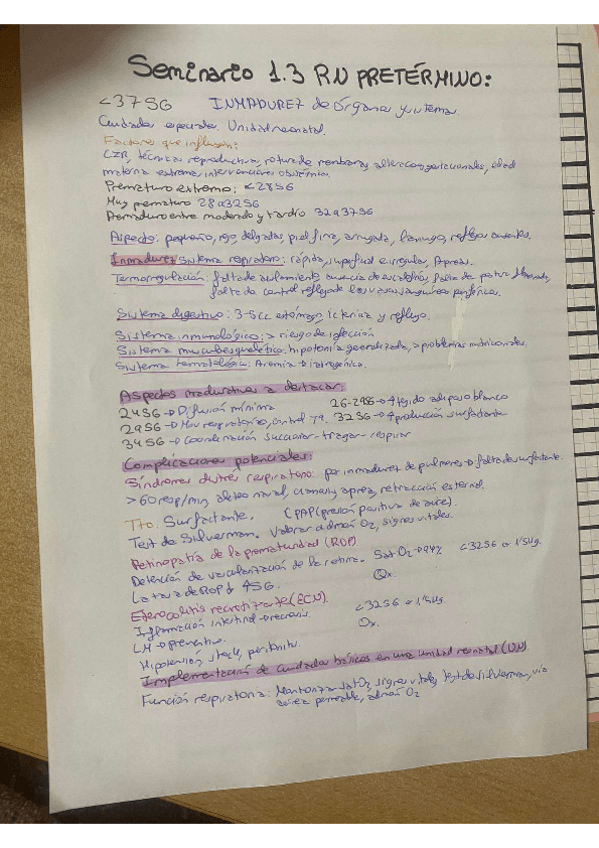 Seminario 1.3 RN PRETÉRMINO:
<37SG INMADUREZ de órganos y sistema.
Cuidados especiales. Unidad neonatal.
Factores que influyen:
CIR, técnicas reproductiva, rotura de membranas, alteraciones gestacionales, edad
materna extrema, intervenciones obstétricas.
Prematuro extremo: <28SG
Muy prematuro 28 a 32SG
Prematuro entre moderado y tardío 32 a 37SG
Aspecto: pequeño, rojo, delgadas, piel fina, arrugada, lanugo, reflejos ausentes.
Inmadurez sistema respiratorio: rápida, superficial e irregular, Apneas.
Termorregulación: falta de aislamiento, ausencia de escalofríos, falta de postura flexionada,
falta de control reflejo de los vasos sanguíneos periféricos.
Sistema digestivo: 3-5cc estómago, Ictericia y reflujo.
Sistema inmunológico: > riesgo de infección
Sistema musculoesquelético: hipotonía generalizada, > problemas nutricionales.
Sistema hematológico: Anemia → iatrogénica.
Aspectos madurativos a destacar:
24SG → Difusión mínima 26-29SG → ↑ tejido adiposo blanco
29SG → Mov respiratorios, control Tª. 32SG → ↑ producción surfactante
34SG → Coordinación succionar-tragar-respirar
Complicaciones potenciales:
Síndrome distrés respiratorio: por inmadurez de pulmones → falta de surfactante.
>60 resp/min, aleteo nasal, cianosis, apnea, retracción esternal.
Tto. Surfactante. CPAP (presión positiva de aire).
Test de Silverman. Valorar admón O₂, signos vitales.
Retinopatía de la prematuridad (ROP)
Detención de vascularización de la retina. Sat O₂ >94% <32SG o 1'5kg.
La tasa de ROP ↓ 4SG. Qx.
Enterocolitis necrotizante (ECN).
Inflamación intestinal → necrosis. <32SG o 1'5kg
LM → preventivo. Qx.
Hipotensión, shock, peritonitis.
Implementación de cuidados básicos en una unidad neonatal (UN).
Función respiratoria: Monitorizar satO₂, signos vitales, test de silverman, vía
aérea permeable, admón O₂